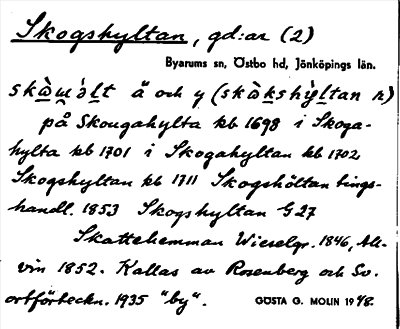 Skogshyltan, gd:ar (2)
Byarums sn, Östbo hd, Jönköpings län.
å och y
på Skougahylta kb 1698 i Skoga-
hylta kb 1701 i Skogahyltan kb 1702
Skogshyltan kb 1711 Skogshöltan tings-
handl. 1853 Skogshyltan G27
Skattehemman Wieselgr. 1846, All-
vin 1852. Kallas av Rosenberg och Sv.
ortförteckn. 1935 "by".
GÖSTA G. MOLIN 1948.